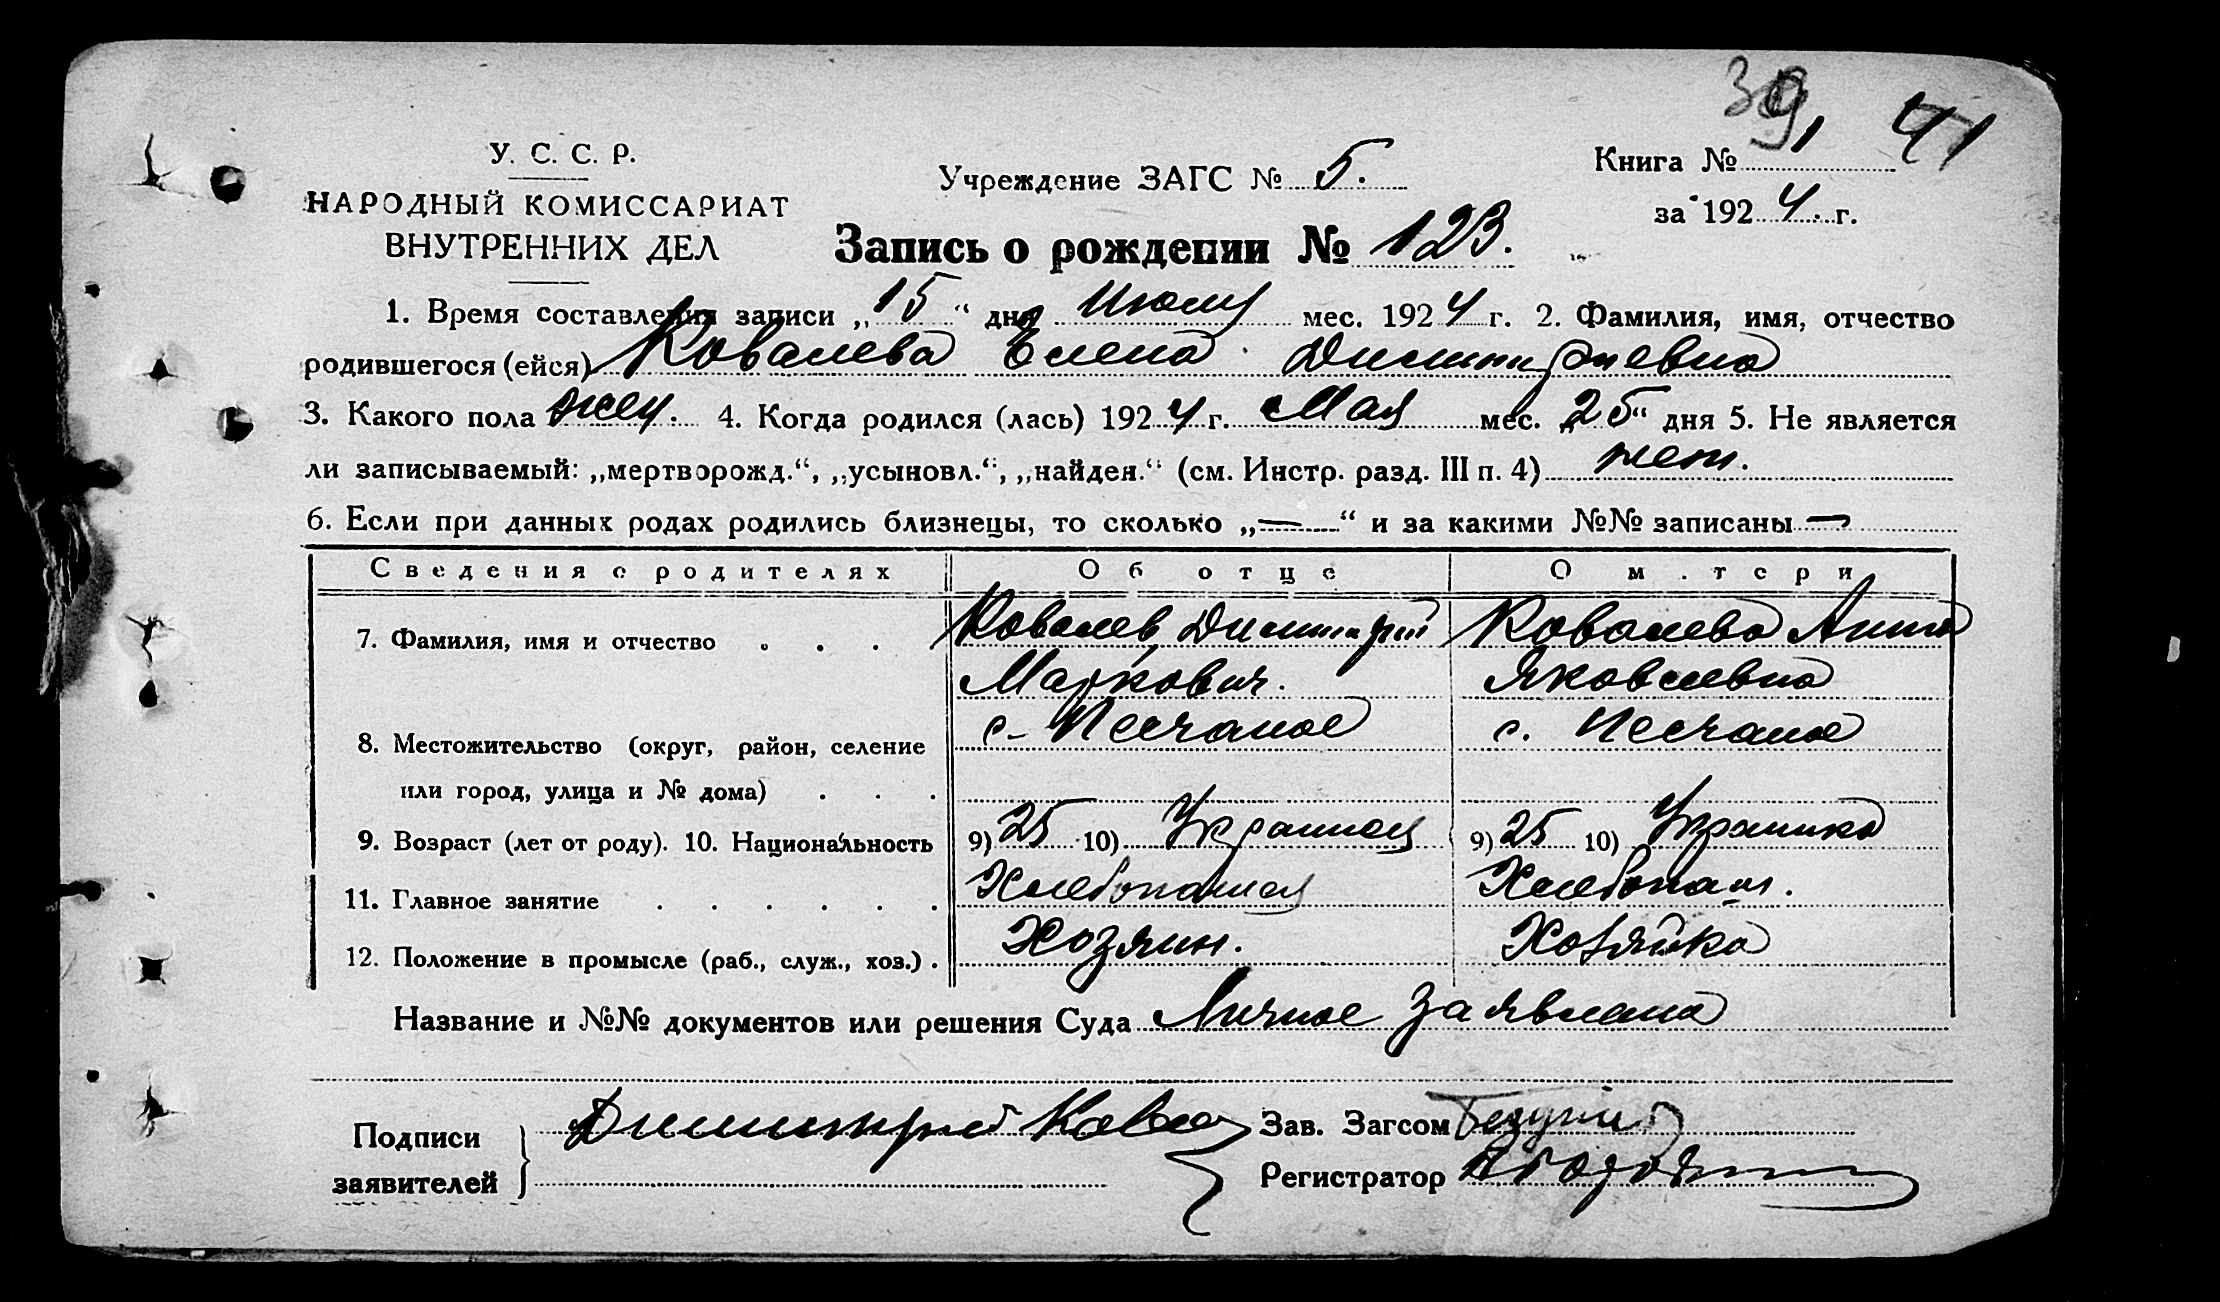 39 41
У. С. С. Р.
НАРОДНЫЙ КОМИССАРИАТ
ВНУТРЕННИХ ДЕЛ
Учреждение ЗАГС № 5.
Книга № 1
за 1924 г.
Запись о рождении № 123.
1. Время составления записи „15“ дня Июля мес. 1924 г. 2. Фамилия, имя, отчество
родившегося (ейся) Ковалева Елена Димитриевна
3. Какого пола жен. 4. Когда родился (лась) 1924 г. Мая мес. 25“ дня 5. Не является
ли записываемый: „мертворожд.“, „усыновл.“, „найден.“ (см. Инстр. разд. III п. 4) нет.
6. Если при данных родах родились близнецы, то сколько „—“ и за какими №№ записаны —
Сведения о родителях Об отце О м.тери
7. Фамилия, имя и отчество . . . Ковалев Димитрий Ковалева Анна
Маркович. Яковлевна
8. Местожительство (округ, район, селение с. Песчаное с. Песчаное
или город, улица и № дома) . . .
9. Возраст (лет от роду). 10. Национальность 9) 25 10) Украинец 9) 25 10) Украинка
11. Главное занятие . . . . . . Хлебопашец Хлебопаш.
12. Положение в промысле (раб., служ., хоз.) . Хозяин. Хозяйка
Название и №№ документов или решения Суда Личное заявлена
Подписи
заявителей
Димитрий Ковал
Зав. Загсом
Регистратор